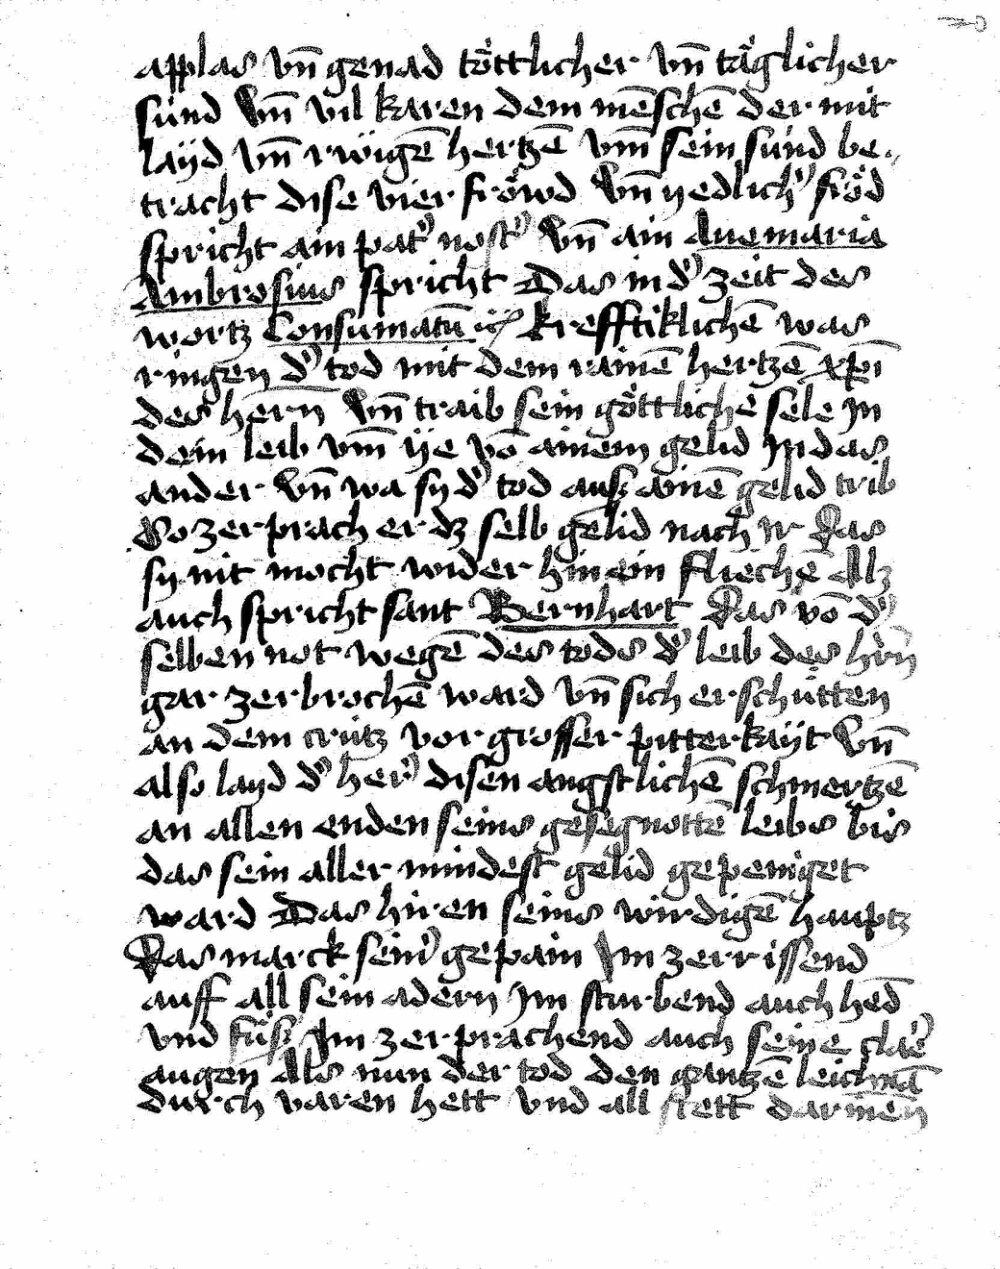 applas vn̄ genad töttlicher vn̄ täglicher
sünd Vn̄ vil karen dem mēschē der mit
layd vn̄ rwigē hertzē vm̄ sein sünd be
tracht dise vier fröwd Vn̄ yedlich' fröd
spricht ain pat' nost' Vn̄ ain Auemaria
Ambrosius spricht Das in d' zeit des
wortz Consumatū krefftiklichē was
ringen d' tod mit dem rainē hertzē xp̄i
des hern̄ Vn̄ traib sein göttlichē sele Jn
dem leib vm̄ ye vō ainem gelid Jn das
ander Vn̄ wa sy d' tod auß ainē gelid trib
So zerprach er dz selb gelid nach Jr Das
sy nit mocht wider hin ein fliechē Alz
auch spricht sant Bernhart Das vō d'
selben not wegē des tods d' leib des hr̄n
gar zerbrochē ward vn̄ sich erschütten
an dem crütz vor grosser pitterkayt Vn̄
also layd d' her' disen angstlichē schmertzē
an allen enden seins gesegnottē leibs bis
das sein aller mindest gelid gepeniget
ward Das hiren seins wirdigē hauptz
Das marck sein' gepain Jm zerrissend
auff all sein adern Jm sturbend auch hēd
vnd füß Jm zerprachend auch seine claē'
augen Als nun der tod den gantzē leichnā
durch varen hett vnd all stett darinēn